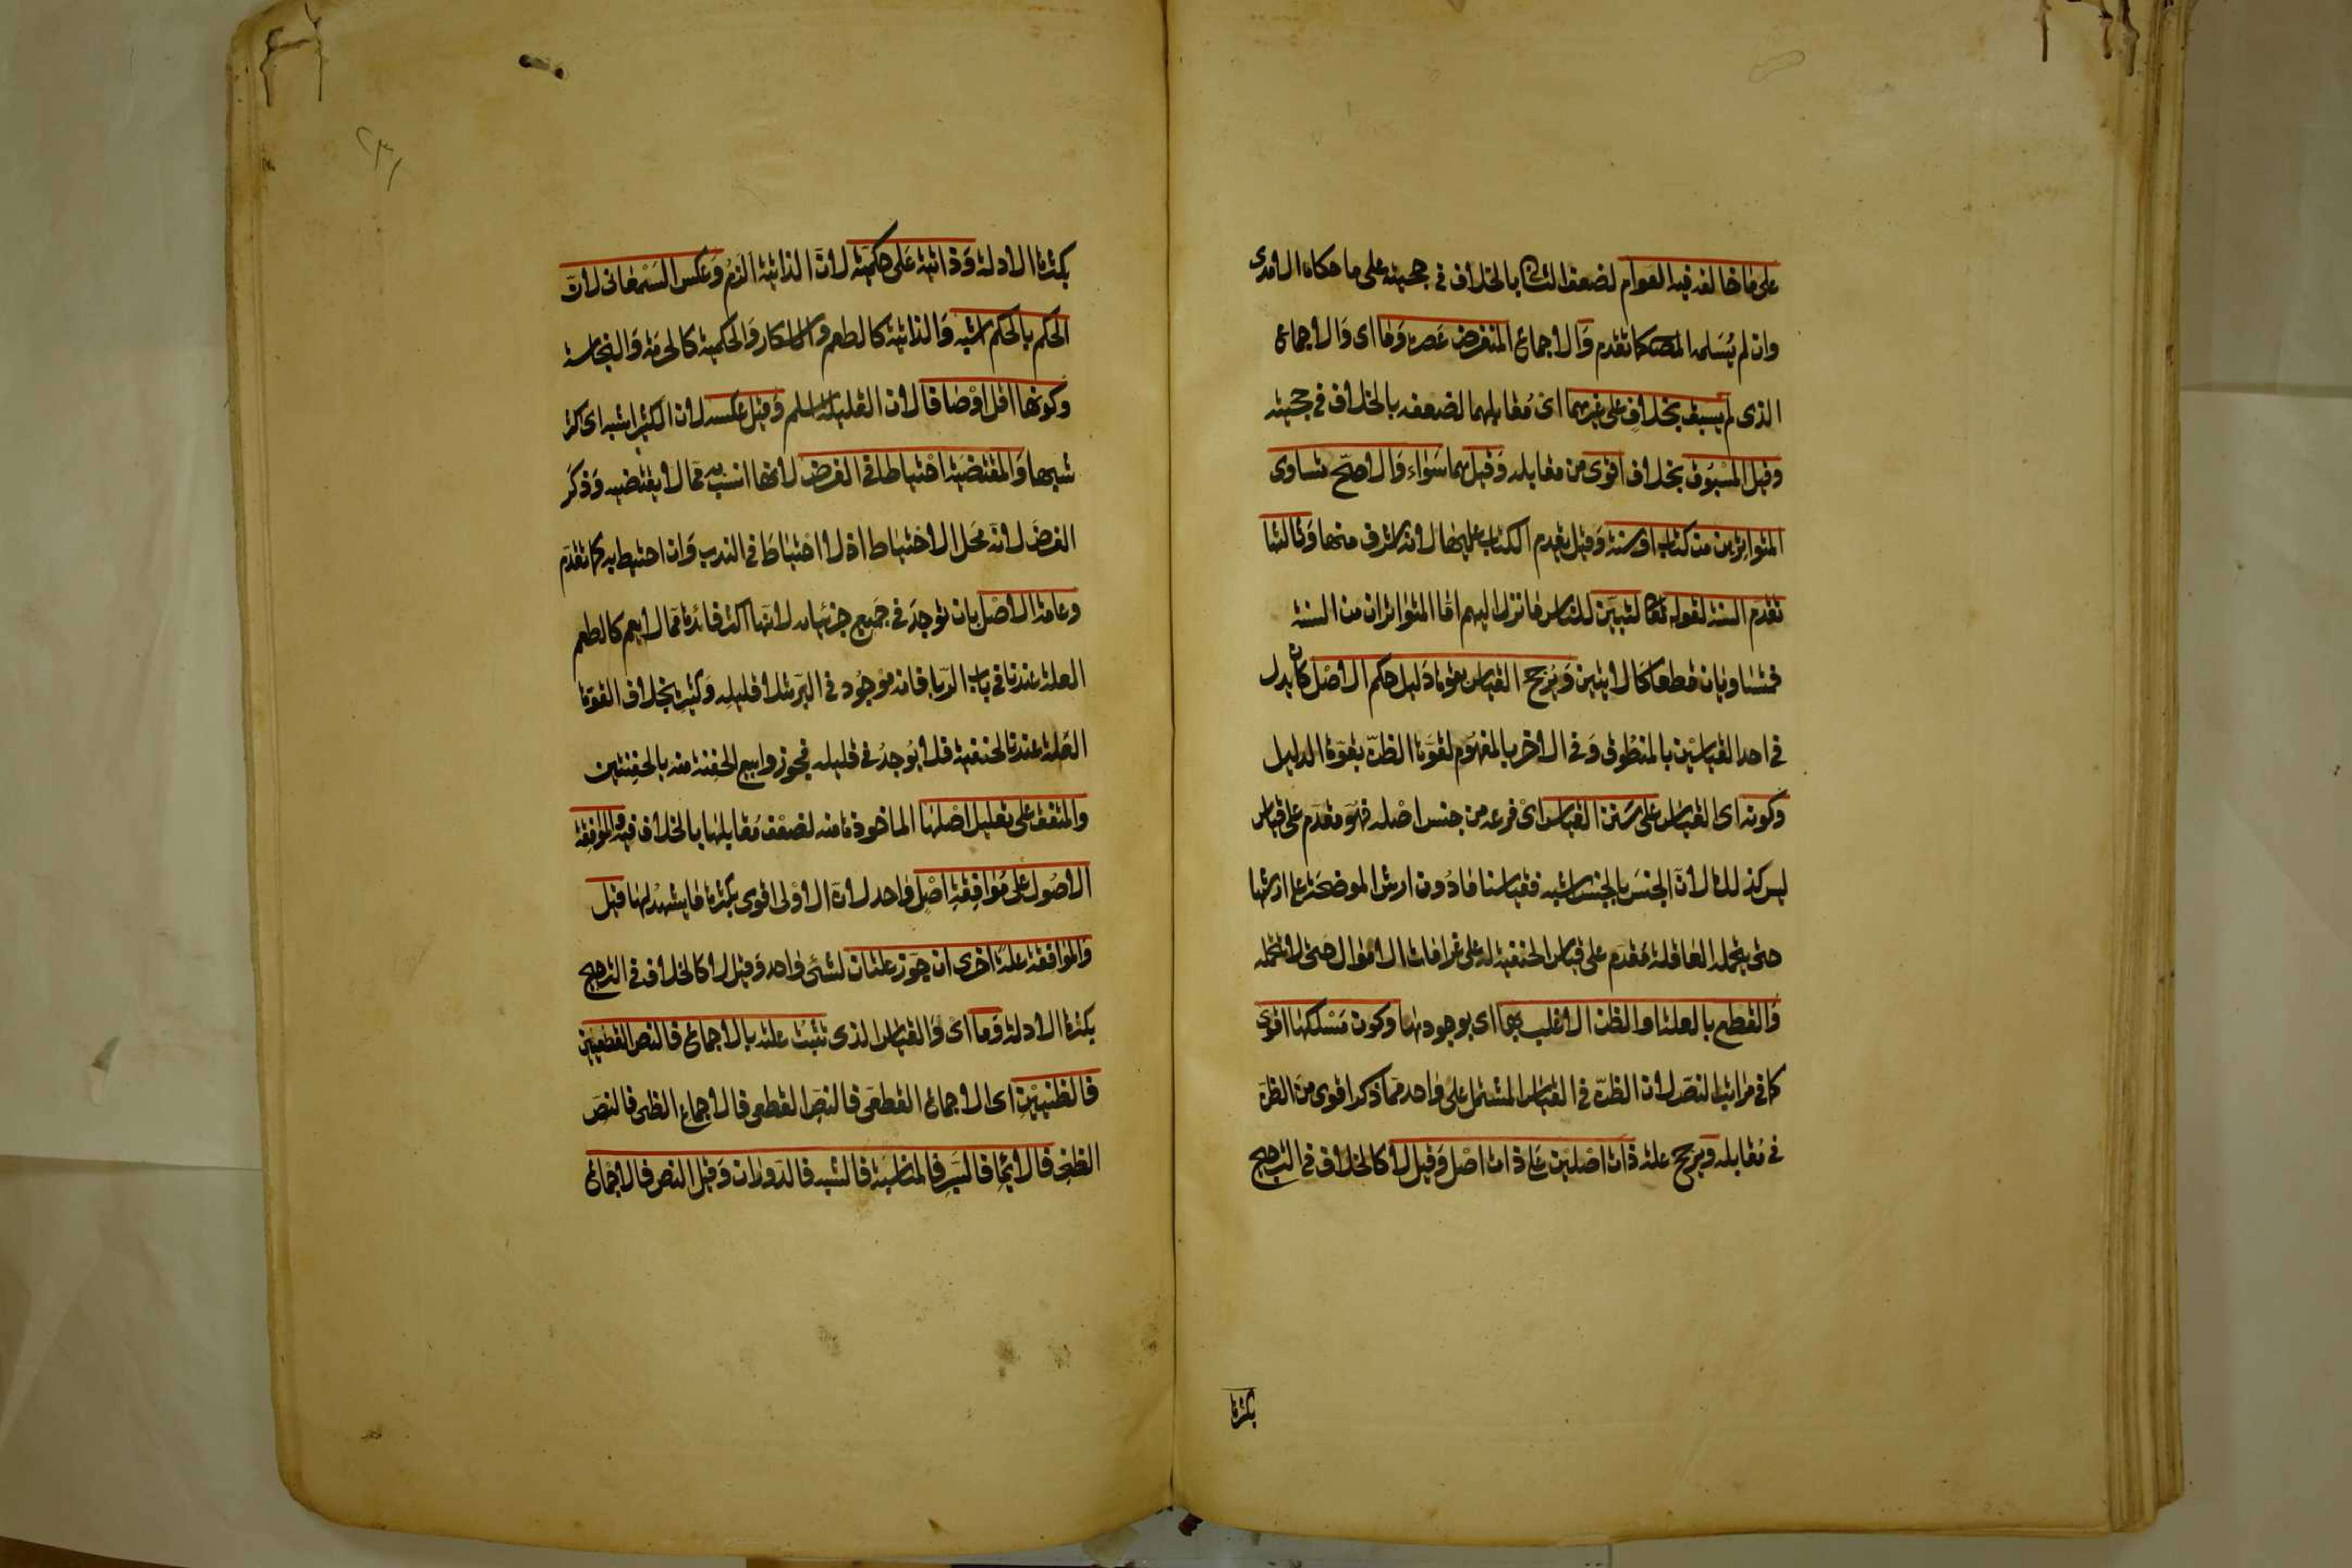 على ما خالفه فيه العوام لضعف الثانى بالخلاف فى حجيته على ما حكاه الآمدى
وان لم يُسَلمه المصـ كما تقدم وَالاجماع المنقرض عَصره وَما اى وَالاجماع
الذى لم يسبق بخلافٍ على غيرهما اى مُقابلهما لضعفه بالخلاف فى حجيته
وقيل المسْبُوق بخلاف اقوى من مقابله وَقيل هما سَوَاء وَالاصحّ تساوى
المتواترين من كتاب او سنة وَقيل يقدم الكتاب عليها لانه اشرف منها وَثالثها
تقدم السنة لقوله تعا لتبيّن للناس ما نزل اليهم امّا المتواتران من السنة
فمتساويان قطعا كالايتين وَيُرجح القياس بقوة دَليل حكم الاصْل كان يدل
فى احد القياسَيْن بالمنطُوق وَفى الاخر بالمفهوُم لقوَة الظنّ بقوّة الدليل
وكونه اى القياس على سَنن القياس اىْ فرعه من جنس اصْله فهوَ مقدّم على قياس
ليس كذلك لانّ الجنسَ بالجنس اشبه فقياسنا مادُون ارش الموضحَة على ارشها
حتى يحمله العاقلة مُقدّم على قياس الحنفية له على غرامات الاموال حتى لا تتحمله
وَالقطع بالعلة او الظن الاغلب بها اى بوجودها وكون مَسْلكها اقوى
كما فى مراتب النصّ لان الظنّ فى القياس المشتمل على واحد ممّا ذكر اقوى من الظنّ
فى مُقابله وَيرجح علة ذات اصْليَن على ذات اصْل وَقيل لا كالخلاف فى الترجيح
بكثرة
بكثرة الادلة وَذاتية عَلى حكميّة لانّ الذاتية الزمُ وَعكس السَّمْعانى لانّ
الحكم بالحكم اشبه وَالذاتية كالطعم والاسكار وَالحكمية كالحرمَة وَالنجاسة
وكونها اقل اوْصَافا لان القليلة اسلم وَقيل عكسه لان الكثير اشبه اى اكثر
شبها وَالمقتضيَة احْتياطا فى الفرض لانها انسب به ممّا لا يقتضيه وَذكَر
الفرضَ لانّه مَحل الاحْتياط اذ لا احْتياطَ فى الندب وَان احتيط به كما تقدّم
وعامة الاصْل بان توجدَ فى جَميع جزئياته لانّها اكثر فائدة ممّا لا يعم كالطعم
العلة عندنا فى باب الرّبا فانه مَوْجُود فى البُرّ مثلا قليلِه وَكثيره بخلاف القوت
العلة عند الحنفية فلا يُوجدُ فى قليله فجوزوا بيع الحفنة منه بالحفنتين
والمتفق على تعليل اصْلها الماخوذة منه لضعْف مُقابلها بالخلاف فيه والموافقة
الاصُول على مُوافِقةِ اصْلٍ واحد لانّ الاوْلى اقوى بكثرة ما يشهدُ لها قيل
وَالموَافقة علة اخرى ان جوّز علتان لشىء وَاحد وَقيل لا كالخلاف فى الترجيح
بكثرة الادلة وَما اىْ وَالقياس الذى ثبتَت علته بالاجماع فالنص القطعيين
فالظنييْن اى الاجماع القطعى فالنصّ القطعى فالاجماع الظنى فالنصّ
الظنى فالايما فالسَّبر فالمناسَبة فالشبه فالدوَران وَقيل النص فالاجماع